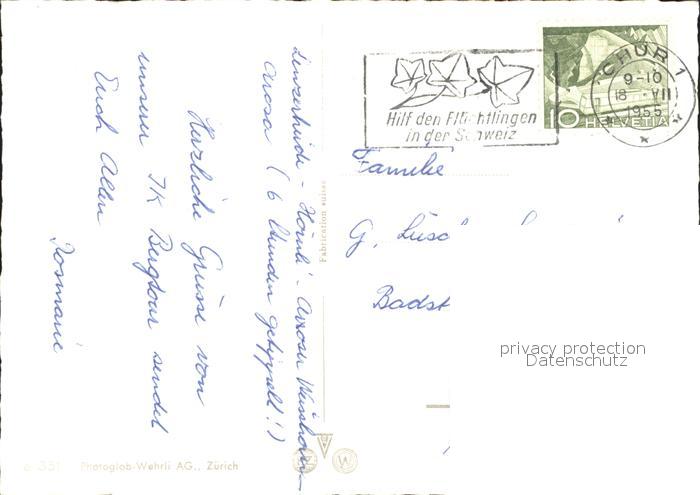 Lenzerheide - Hörnli - Aroser Weisshorn -
Arosa ( 6 Stunden getippelt! )
Herzliche Grüsse von
unserer JK Bergtour sendet
Euch Allen
Rosmarie
Fabrication suisse
Photoglob-Wehrli AG., Zürich
Hilf den Flüchtlingen
in der Schweiz
CHUR 1
9-10
18 VII
1955
10 HELVETIA
Familie
G.
privacy protection
Datenschutz